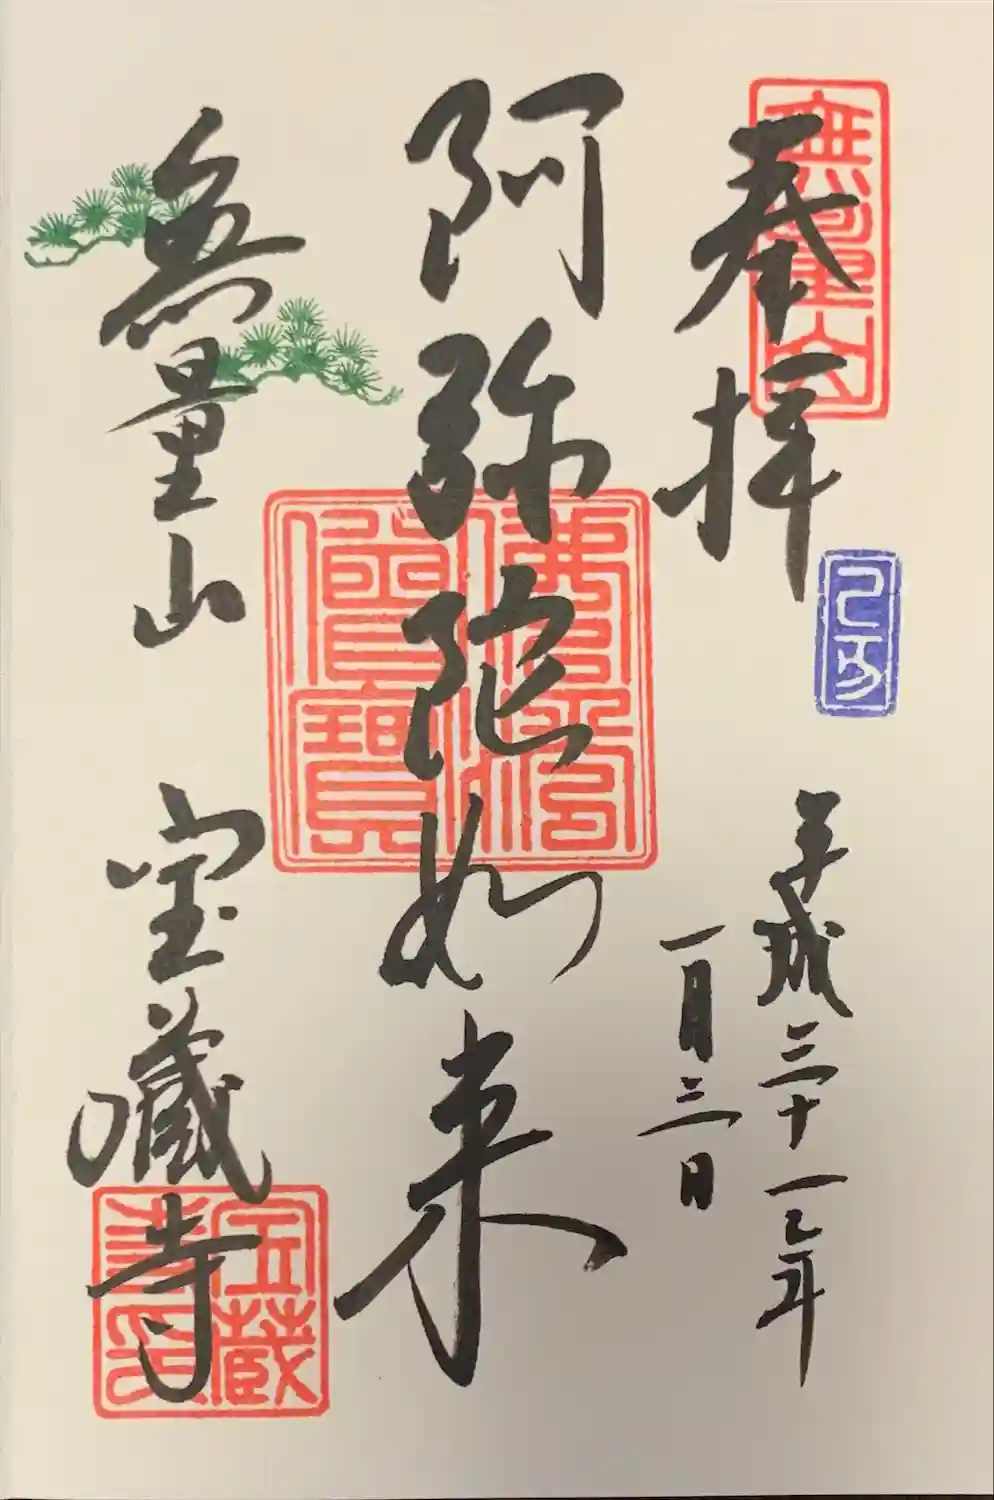 無量山
奉拝
己亥
平成三十一年
一月三日
阿弥陀如来
佛法僧寶
無量山 宝蔵寺
宝蔵
寺印